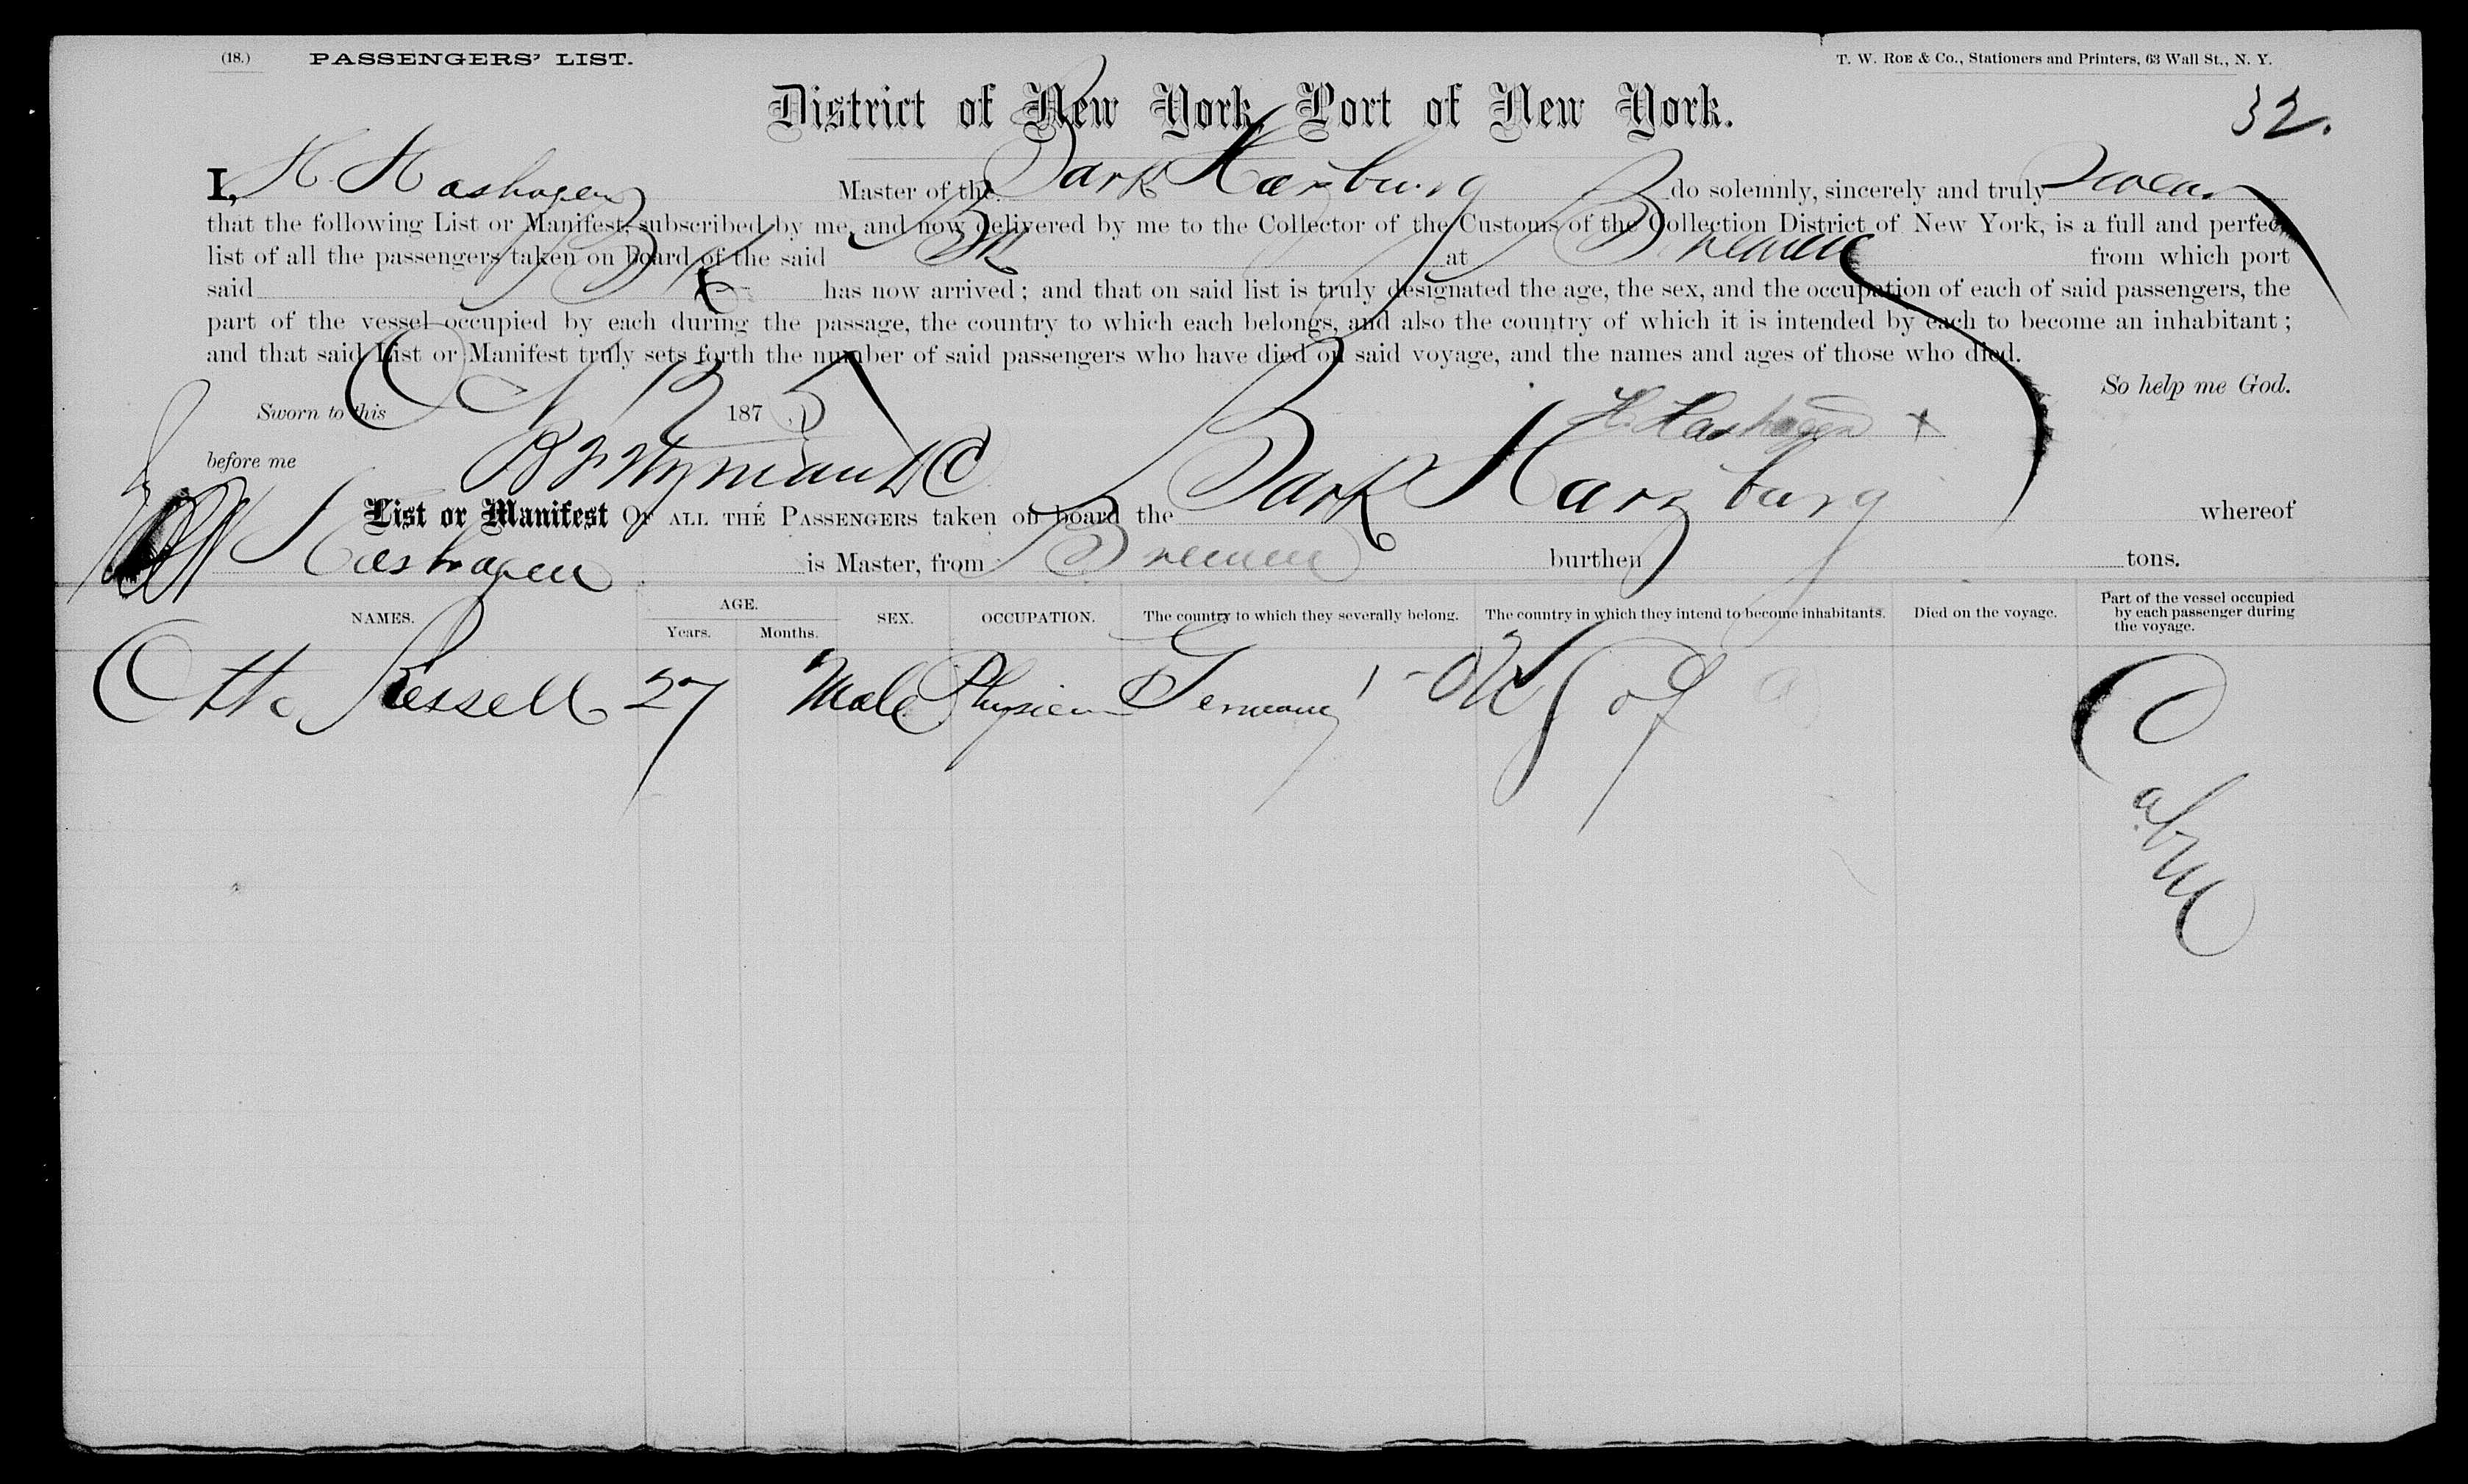 (18.) PASSENGERS' LIST. T. W. ROE & Co., Stationers and Printers, 63 Wall St., N. Y.
District of New York, Port of New York. 32.
I, H. Hashagen Master of the Bark Harzburg do solemnly, sincerely and truly swear
that the following List or Manifest, subscribed by me, and now delivered by me to the Collector of the Customs of the Collection District of New York, is a full and perfect
list of all the passengers taken on Board of the said Bk at Bremen from which port
said Bk has now arrived; and that on said list is truly designated the age, the sex, and the occupation of each of said passengers, the
part of the vessel occupied by each during the passage, the country to which each belongs, and also the country of which it is intended by each to become an inhabitant;
and that said List or Manifest truly sets forth the number of said passengers who have died on said voyage, and the names and ages of those who died.
So help me God.
Sworn to this Oct 12 1875 H. Hashagen x
before me
List or Manifest OF ALL THE PASSENGERS taken on board the Bark Harzburg whereof
Hashagen is Master, from Bremen burthen tons.
NAMES. AGE. Years. Months. SEX. OCCUPATION. The country to which they severally belong. The country in which they intend to become inhabitants. Died on the voyage. Part of the vessel occupied by each passenger during the voyage.
Otto Ressell 27 Male Physician Germany Cabin